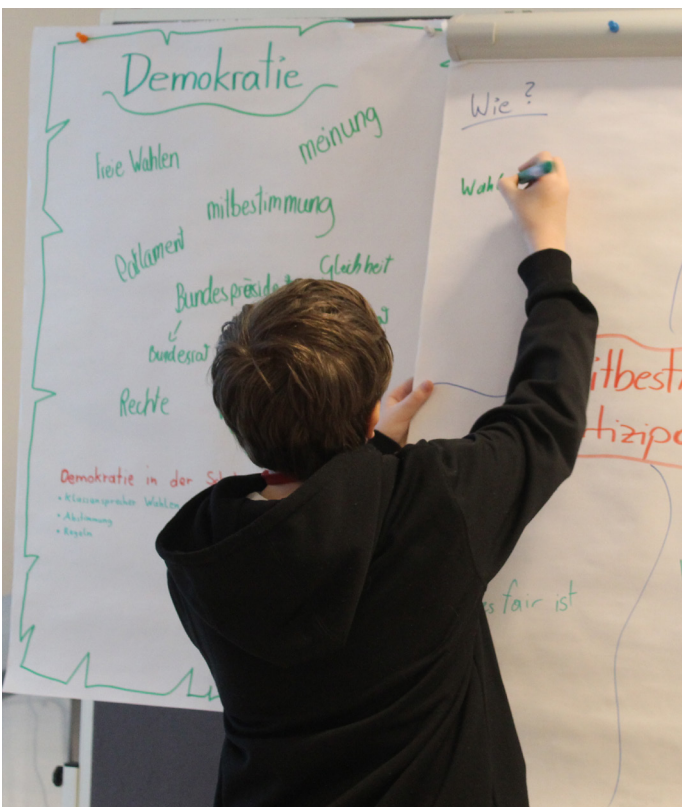 Demokratie
meinung
Freie Wahlen
mitbestimmung
Parlament
Gleichheit
Bundespräside
Bundesrat
Rechte
Demokratie in der Sch
• Klassensprecher Wahlen
• Abstimmung
• Regeln
Wie?
Wahl
itbesti
tizipa
es fair ist